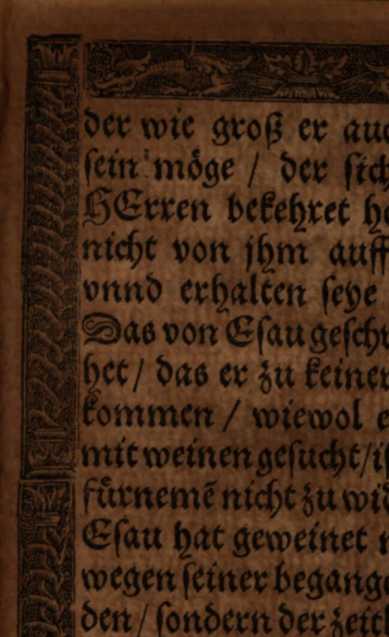 der wie groß er auc
sein möge / der sich
HErren bekehret h
nicht von jhm auff
vnnd erhalten seye
Das von Esau gesch
het / das er zu keiner
kommen / wiewol e
mit weinen gesucht / i
fürnemẽ nicht zu wid
Esau hat geweinet
wegen seiner begang
den / sondern der zeit